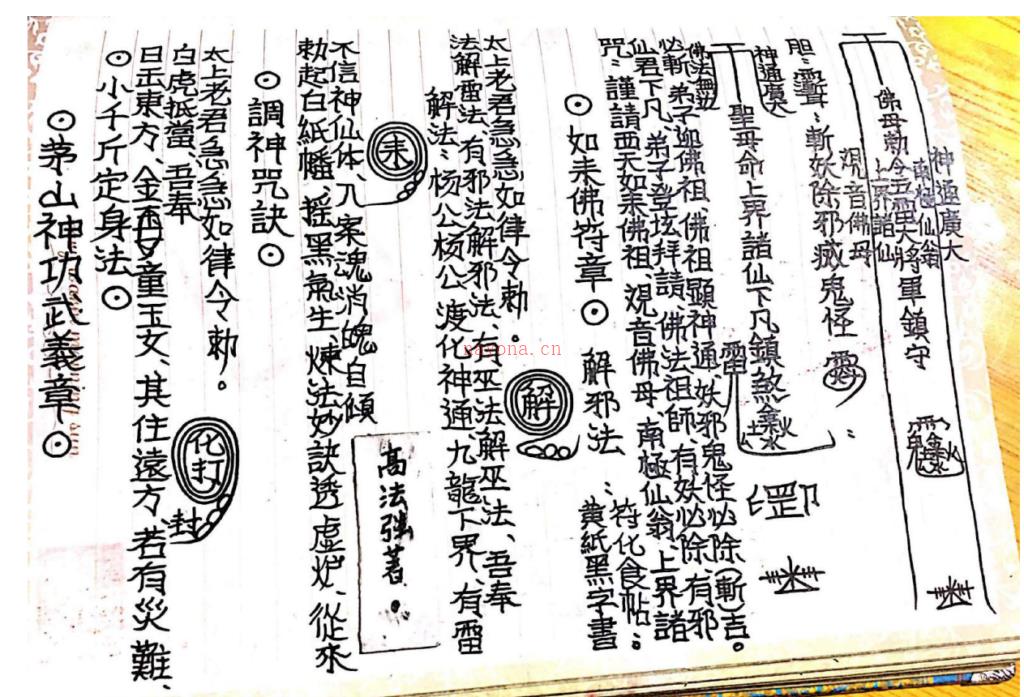 ⊙茅山神功武義章⊙
⊙小千斤定身法⊙
日正東方、金再女童玉女、其住遠方、若有災難、
白虎抵當、吾奉
太上老君急急如律令勅。
化打
封
⊙調神咒訣⊙
勅起白紙幡、摇黑氣生、煉法妙訣透虛妒、從來
不信神仙体、入案魂消魄自傾
耒
高法強著。
解法:杨公杨公、渡化神通、九龍下界、有雷
法解雷法、有邪法解邪法、有巫法解巫法、吾奉
太上老君急急如律令勅。
解
⊙如来佛符章⊙ 解邪法:黃紙黑字書
符化食帖:
咒:謹請西天如来佛祖、观音佛母、南極仙翁、上界諸
仙君下凡、弟子登坛拜請、佛法祖師、有妖必除、有邪
必斬、弟子迎佛祖、佛祖顯神通、妖邪鬼怪必除(斬)吉。
佛法無边
聖母命上界諸仙下凡鎮煞
神通廣大
雷
火
土
水
胆:靈聲:斬妖除邪滅鬼怪
观音佛母
上界諸仙
佛母勅令五雷大將軍鎮守
南極仙翁
神通廣大